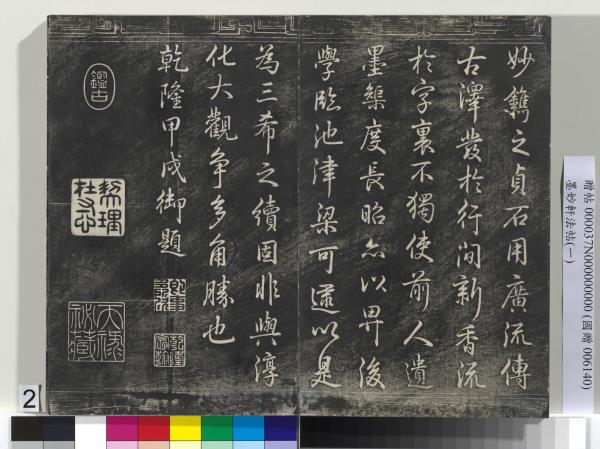 妙鐫之貞石用廣流傳
古澤發於行間新香流
於字裏不獨使前人遺
墨榘度長昭亦以畀後
學臨池津梁可遽以是
為三希之續固非與淳
化大觀爭多角勝也
乾隆甲戌御題
鑑古
乾隆
天祿
贈帖 000037N000000000 (國贈 006140)
墨妙軒法帖(一)
2